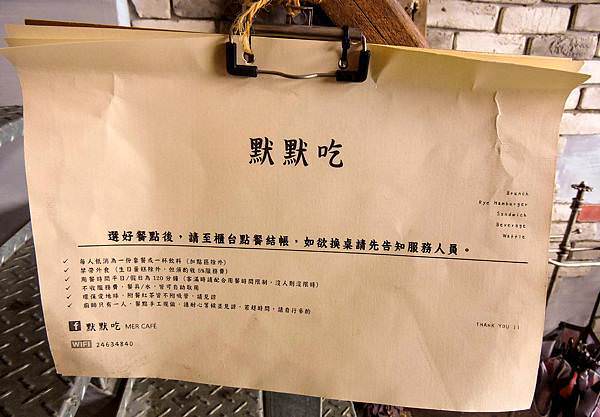 默默吃
Brunch
Rye Hamburger
Sandwich
Beverage
Waffle
選好餐點後，請至櫃台點餐結帳，如欲換桌請先告知服務人員。
✓ 每人低消為一份套餐或一杯飲料（加點區除外）
✓ 禁帶外食（生日蛋糕除外，但須酌收5%服務費）
✓ 用餐時間平日/假日為120分鐘（客滿時請配合用餐時間限制，沒人則沒限時）
✓ 不收服務費，餐具/水，皆可自助取用
✓ 環保愛地球，附餐紅茶皆不附吸管，請見諒
✓ 廚師只有一人，餐點手工現做，請耐心等候並見諒，若趕時間，請自行斟酌
f 默默吃 MER CAFÉ
THANK YOU ||
WIFI 24634840